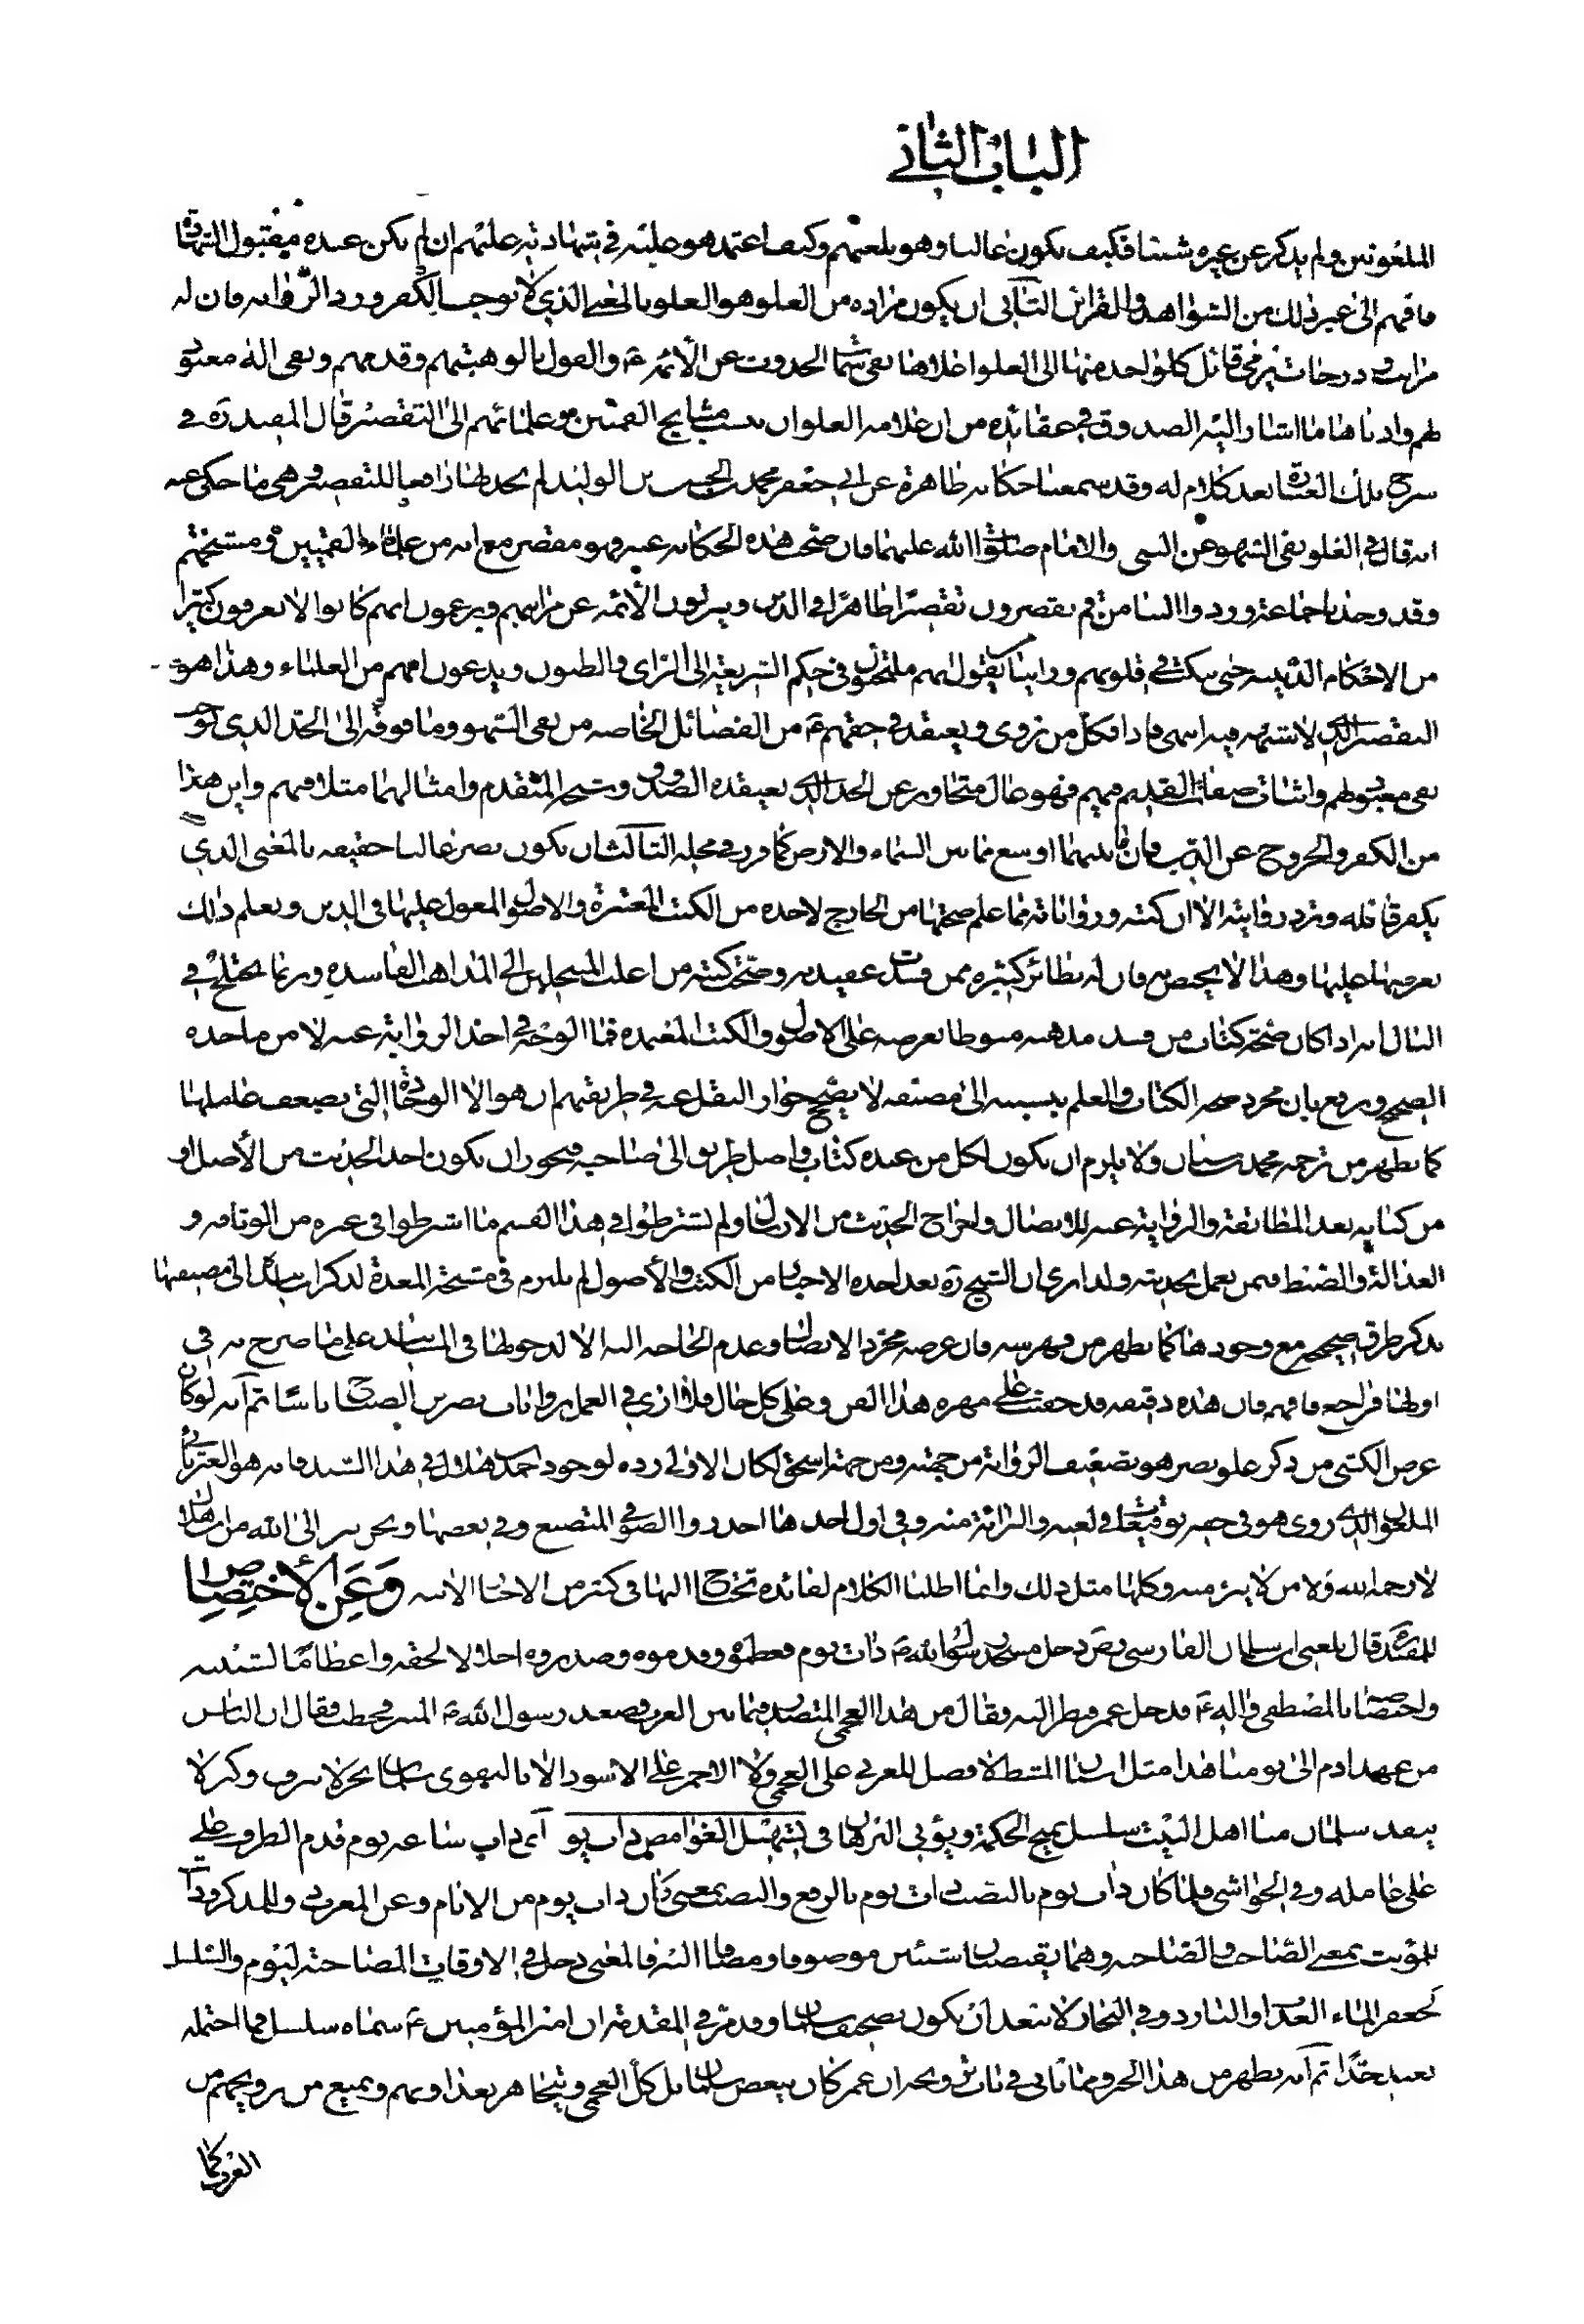 الباب الثاني
الملعونين ولم يذكر عن غيره شيئا فكيف يكون غاليا وهو يلعنهم وكيف اعتمد هو عليه في شهادته عليهم ان لم يكن عنده مقبول الشهادة
فافهم الى غير ذلك من الشواهد والقرائن الثاني ان يكون مراده من الغلو هو الغلو بالمعنى الذي لا يوجب الكفر ورد الرواية فان له
مراتب ودرجات قائل كل واحدة منها الى الغلو اعلاها نفي سمات الحدوث عن الائمة ع والقول بالوهيتهم وقدمهم ونفي اله معبود
لهم وادناها ما اشار اليه الصدوق في عقائده من ان علامة الغلو ان نسب مشايخ القميين وعلمائهم الى التقصير قال المفيد ره في
شرح تلك العبارة بعد كلام له وقد سمعنا حكاية ظاهرة عن ابي جعفر محمد بن الحسن بن الوليد لم نجد لها دافعا للتقصير وهي ما حكي عنه
انه قال في الغلو نفي السهو عن النبي والامام صلوات الله عليهما فان صحت هذه الحكاية عنه فهو مقصر مع انه من علماء القميين ومشيختهم
وقد وجدنا جماعة وردوا الينا من قم يقصرون تقصيرا ظاهرا في الدين وينزلون الأئمة عن مراتبهم ويزعمون انهم كانوا لا يعرفون كثيرا
من الاحكام الدينية حتى ينكث في قلوبهم وراينا من يقول انهم ملتجئون في حكم الشريعة الى الراى والظنون ويدعون انهم من العلماء وهذا هو
التقصير الذي لا شبهة فيه انتهى فاذا فكل من روى ويعتقد في حقهم ع من الفضائل الخاصة من نفي السهو وما فوقه الى الحد الذي يوجب
نفي معبود لهم واثبات صفات القديم فيهم فهو غال متجاوز عن الحد الذي يعتقده الصدوق وشيخه المتقدم وامثالهما مثلا فيهم واين هذا
من الكفر والخروج عن الدين فان ما بينهما اوسع مما بين السماء والارض كما قرر في محله الثالث ان يكون نصر غاليا حقيقة بالمعنى الذي
يكفر قائله وترد روايته الا ان كتبه ورواياته مما علم صحتها من الخارج لاخذه من الكتب المعتبرة والاصول المعول عليها في الدين ويعلم ذلك
بعرضها عليها وهذا لا يختص به فان له نظائر كثيرة ممن فسدت عقيدته وصحت كتبه من اغلب المنتحلين الى المذاهب الفاسدة وربما يختلج في
البال انه اذا كان صحة كتاب من فسد مذهبه منوطا بعرضه على الاصول والكتب المعتمدة فما الوجه في اخذ الرواية عنه لا من ماخذه
الصحيح ويدفع بان مجرد صحة الكتاب والعلم بنسبته الى مصنفه لا يصحح جواز النقل عنه في طريقتهم ان هو الا الوجادة التي يضعف عاملها
كما يظهر من ترجمة محمد بن سنان ولا يلزم ان يكون لكل من عنده كتاب واصل طريق الى صاحبه فيجوز ان يكون اخذ الحديث من الأصل او
من كتابه بعد المطابقة والرواية عنه للاتصال واخراج الحديث من الارسال ولم يشترطوا في هذا القسم ما اشترطوا في غيره من الوثاقة و
العدالة والضبط فيمن يعمل بحديثه ولذا ترى ان الشيخ ره بعد اخذه الاخبار من الكتب والأصول لم يلتزم في مشيخته المعدة لذكر اسانيده الى مصنفيها
بذكر طرق صحيحة مع وجودها كما يظهر من فهرسته فان غرضه مجرد الاتصال وعدم الحاجة اليه الا لدخولها في المسانيد على ما صرح به في
اولها فراجع فافهم فان هذه دقيقة قد خفيت على مهرة هذا الفن وعلى كل حال فلا ارى في العمل بروايات نصر بن الصباح باسا ثم انه لو كان
غرض الكشي من ذكر غلو نصر هو تضعيف الرواية من جهته ومن جهة اسحق لكان الاولى رده لوجود احمد بن هلال في هذا السند فانه هو العبرتائي
الملعون الذي روى هو في حقه توقيعات في لعنه والبرائة منه وفي اول احدها احذروا الصوفي المتصنع وفي بعضها ونحن نبرء الى الله من ابن هلال
لا رحمه الله ولا من لا يبرء منه وكلها مثل ذلك وانما اطلنا الكلام لفائدة تحتاج اليها في كثير من الاخبار الاتية وَعَنِ الْأخْتِصَاص
للمفيد قال بلغني ان سلمان الفارسي رض دخل مسجد رسول الله ص ذات يوم فعظموه وقدموه وصدروه اجلالا لحقه واعظاما لشيبته
واختصاصه بالمصطفى واله ع فدخل عمر فنظر اليه فقال من هذا العجمي المتصدر فيما بين العرب فصعد رسول الله ص المنبر فخطب فقال ان الناس
من عهد ادم الى يومنا هذا مثل اسنان المشط لا فضل للعربي على العجمي ولا للاحمر على الاسود الا بالتقوى سلمان بحر لا ينزف وكنز لا
ينفد سلمان منا اهل البيت سلسل يمنح الحكمة ويؤتي البرهان في تسهيل الغوامض ذات يوم اى ذات ساعة يوم قدم الظروف على
على عامله وفي الحواشي فلما كان ذات يوم بالنصب ذات يوم بالرفع والنصب بمعنى كان ذات يوم من الايام وعن المغرب وللمذكر وذا
للمؤنث بمعنى الصاحب والصاحبة وهما يقتضيان شيئين موصوفا ومضافا اليه فالمعنى دخل في الاوقات المصاحبة ليوم والسلسل
كجعفر الماء العذب او البارد وفي البحار لا يبعد ان يكون تصحيف سلمان وقد مر في المقدمة ان امير المؤمنين ع سماه سلسل فما احتمله
بعيد جدا ثم انه يظهر من هذا الخبر ومما ياتي في باب تزويجه ان عمر كان يبغض سلمان بل كل العجمي ويتجاهر بعداوتهم ويمنع من تزويجهم من
العرب كما